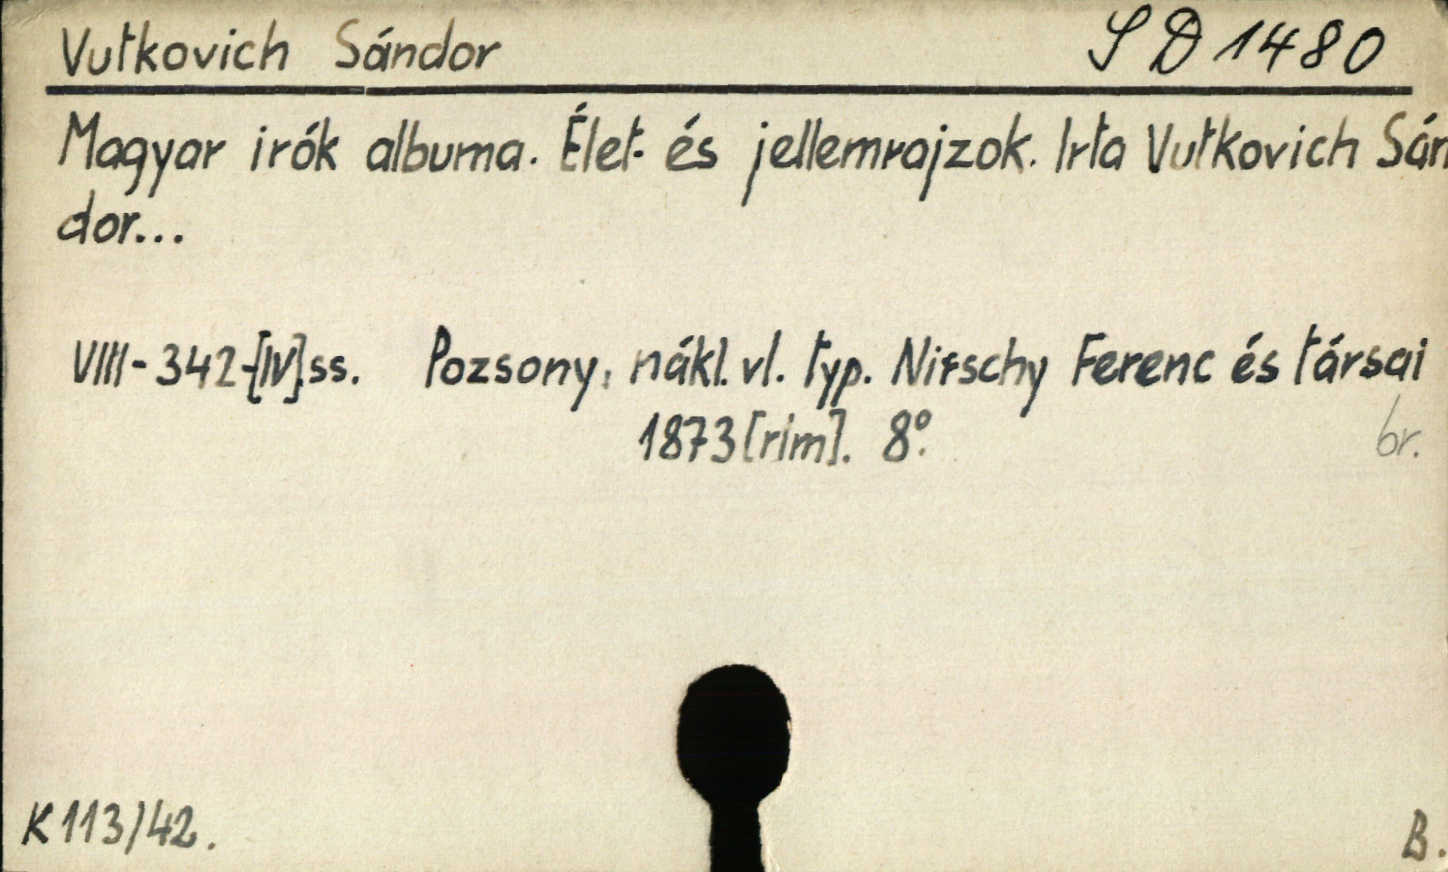 Vutkovich Sándor SD 1480
Magyar irók albuma. Élet- és jellemrajzok. Irta Vutkovich Sán
dor...
VIII-342-[IV].ss. Pozsony, nákl. vl. typ. Nirschy Ferenc és társai
1873 [rim]. 8°.
br.
K 113/42.
B.